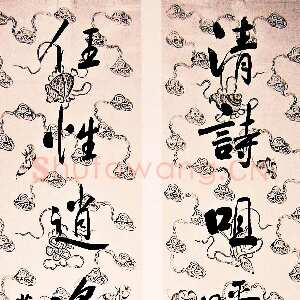 清詩咀
任性逍
Shufawang.CN